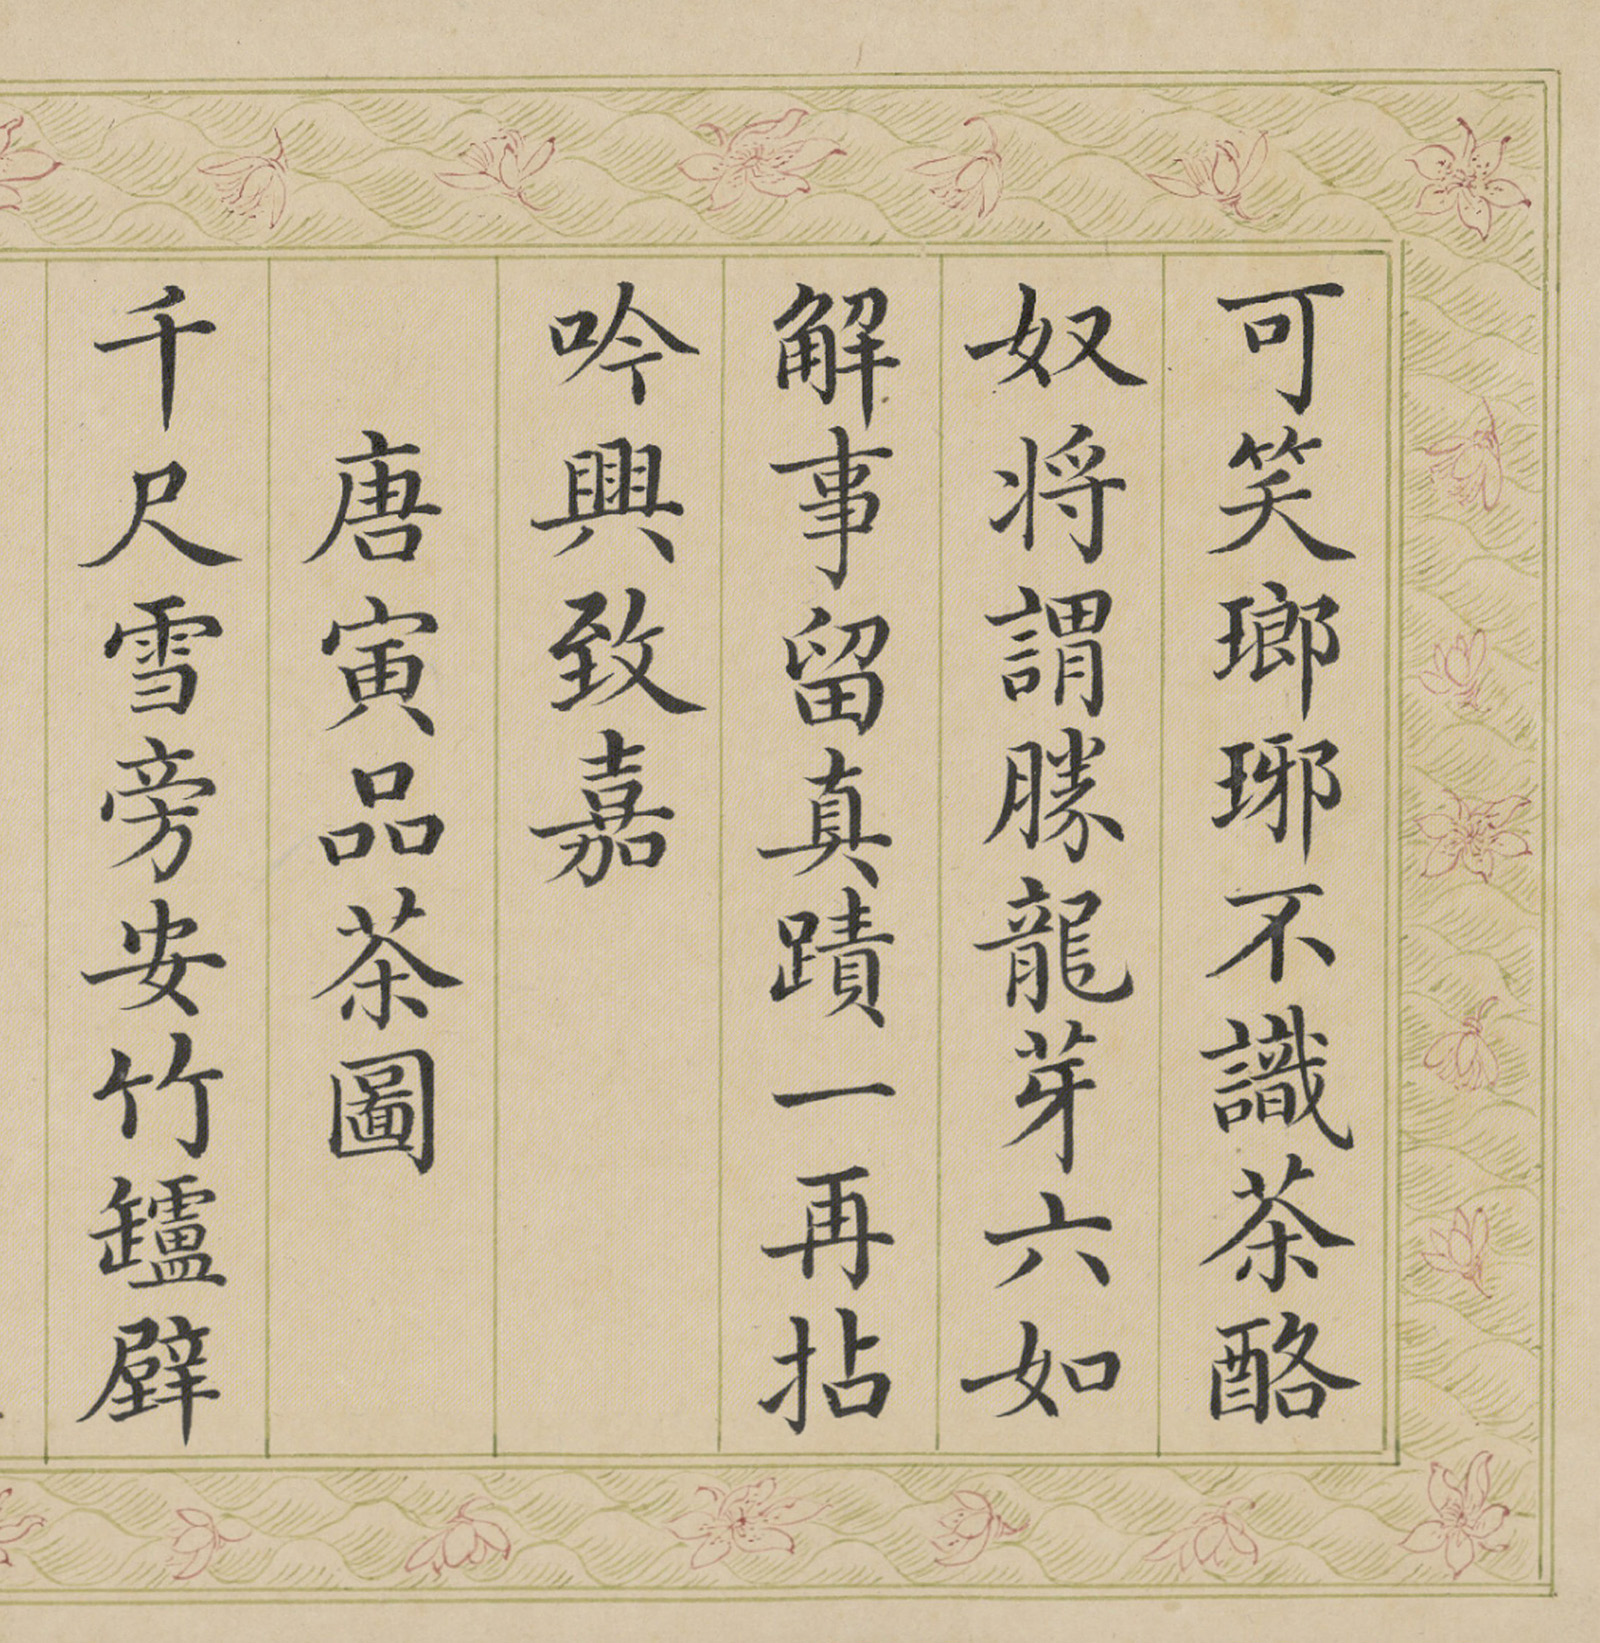 可笑瑯琊不識茶酪
奴将謂勝龍芽六如
解事留真蹟一再拈
吟興致嘉
唐寅品茶圖
千尺雪旁安竹鑪壁